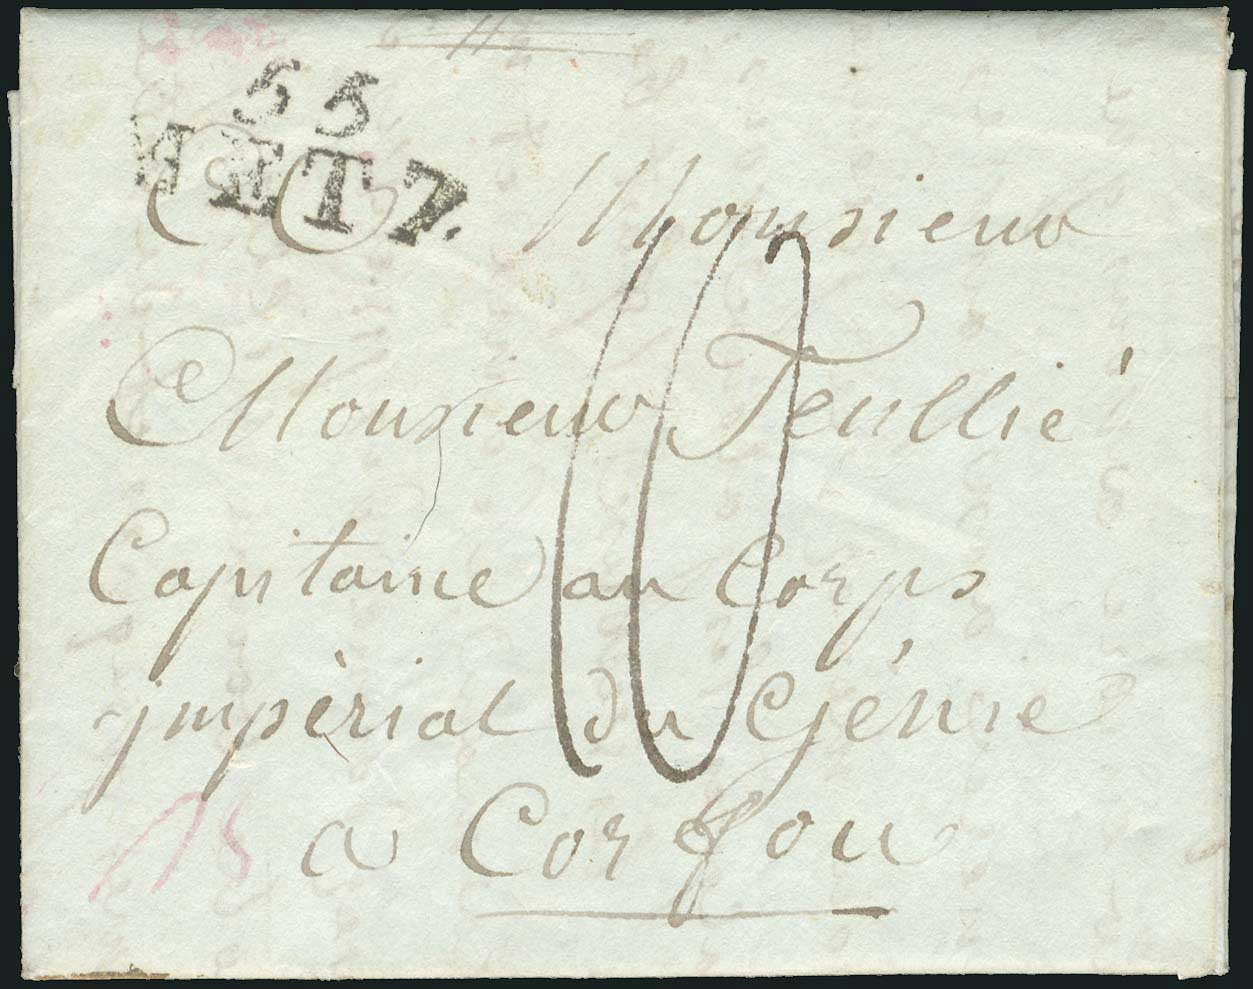 55
METZ.
Monsieur
Monsieur Teullié
Capitaine au Corps
jmpèrial du Génie
a Corfou
10